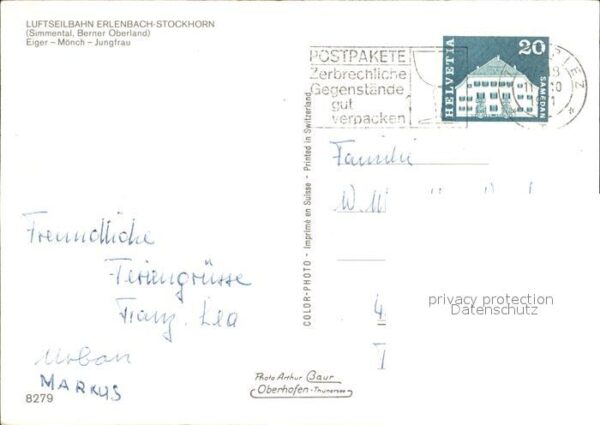 LUFTSEILBAHN ERLENBACH-STOCKHORN
(Simmental, Berner Oberland)
Eiger – Mönch – Jungfrau
POSTPAKETE
Zerbrechliche
Gegenstände
gut
verpacken
HELVETIA
20
SAMEDAN
COLOR-PHOTO - Imprimé en Suisse - Printed in Switzerland
Familie
W.
privacy protection
Datenschutz
Freundliche
Feriengrüsse
Franz. Lea
Urban
MARKUS
Photo Arthur Baur
Oberhofen-Thunersee
8279